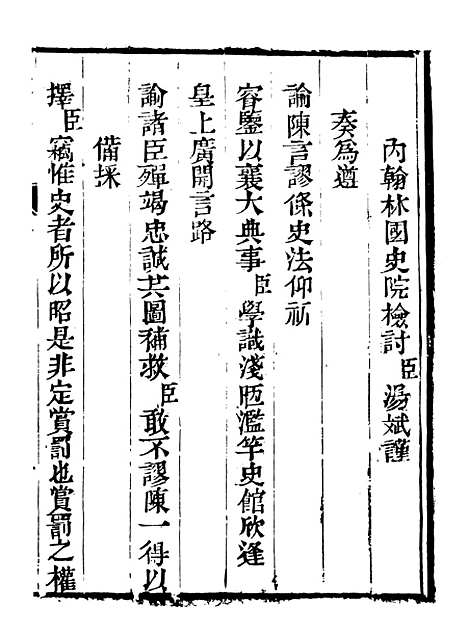 內翰林國史院檢討臣湯斌謹
奏爲遵
諭陳言謬條史法仰祈
睿鑒以襄大典事臣學識淺陋濫竽史館欣逢
皇上廣開言路
諭諸臣殫竭忠誠共圖補救臣敢不謬陳一得以
備採
擇臣竊惟史者所以昭是非定賞罰也賞罰之權